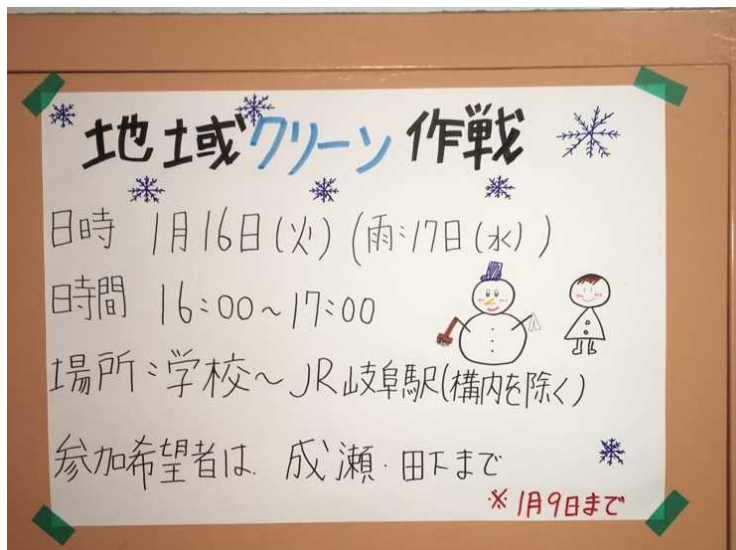 地域クリーン作戦
日時 1月16日(火)(雨:17日(水))
時間 16:00~17:00
場所:学校~JR岐阜駅(構内を除く)
参加希望者は 成瀬・田下まで
※1月9日まで